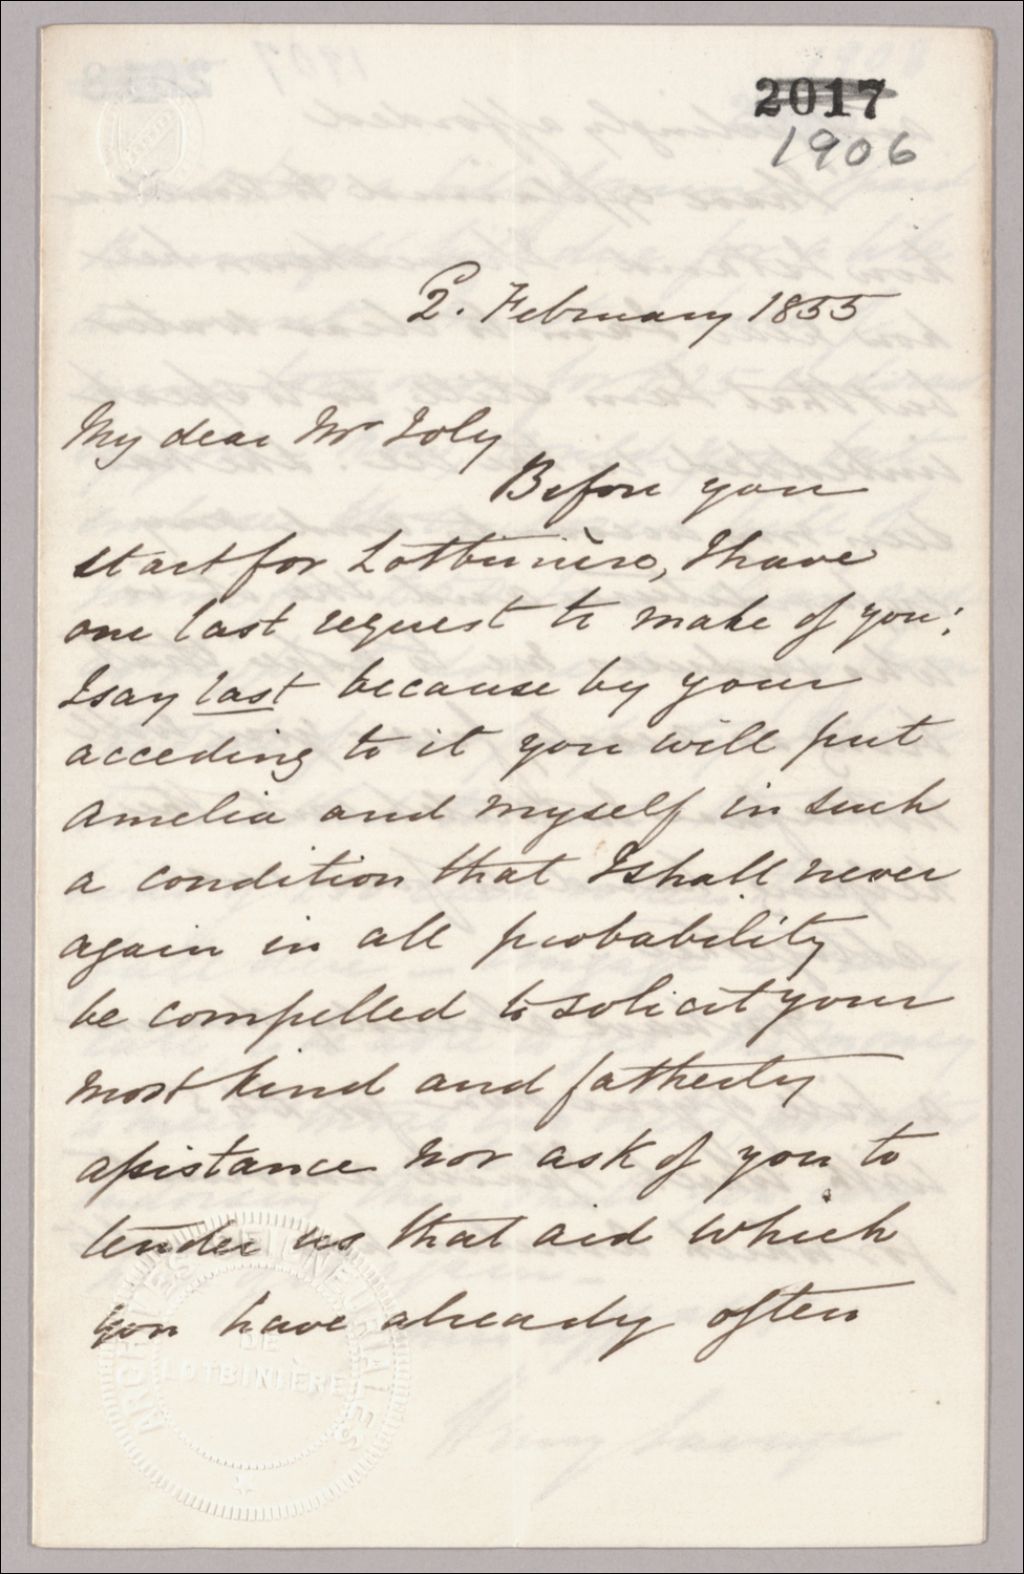 2017
1906
2. February 1855
My dear Mr Joly
Before you
start for Lotbinière, I have
one last request to make of you;
I say last because by your
acceding to it you will put
Amelia and myself in such
a condition that I shall never
again in all probability
be compelled to solicit your
most kind and fatherly
assistance nor ask of you to
tender us that aid which
you have already often
ARCHIVES SEIGNEURIALES
DE
LOTBINIÈRE